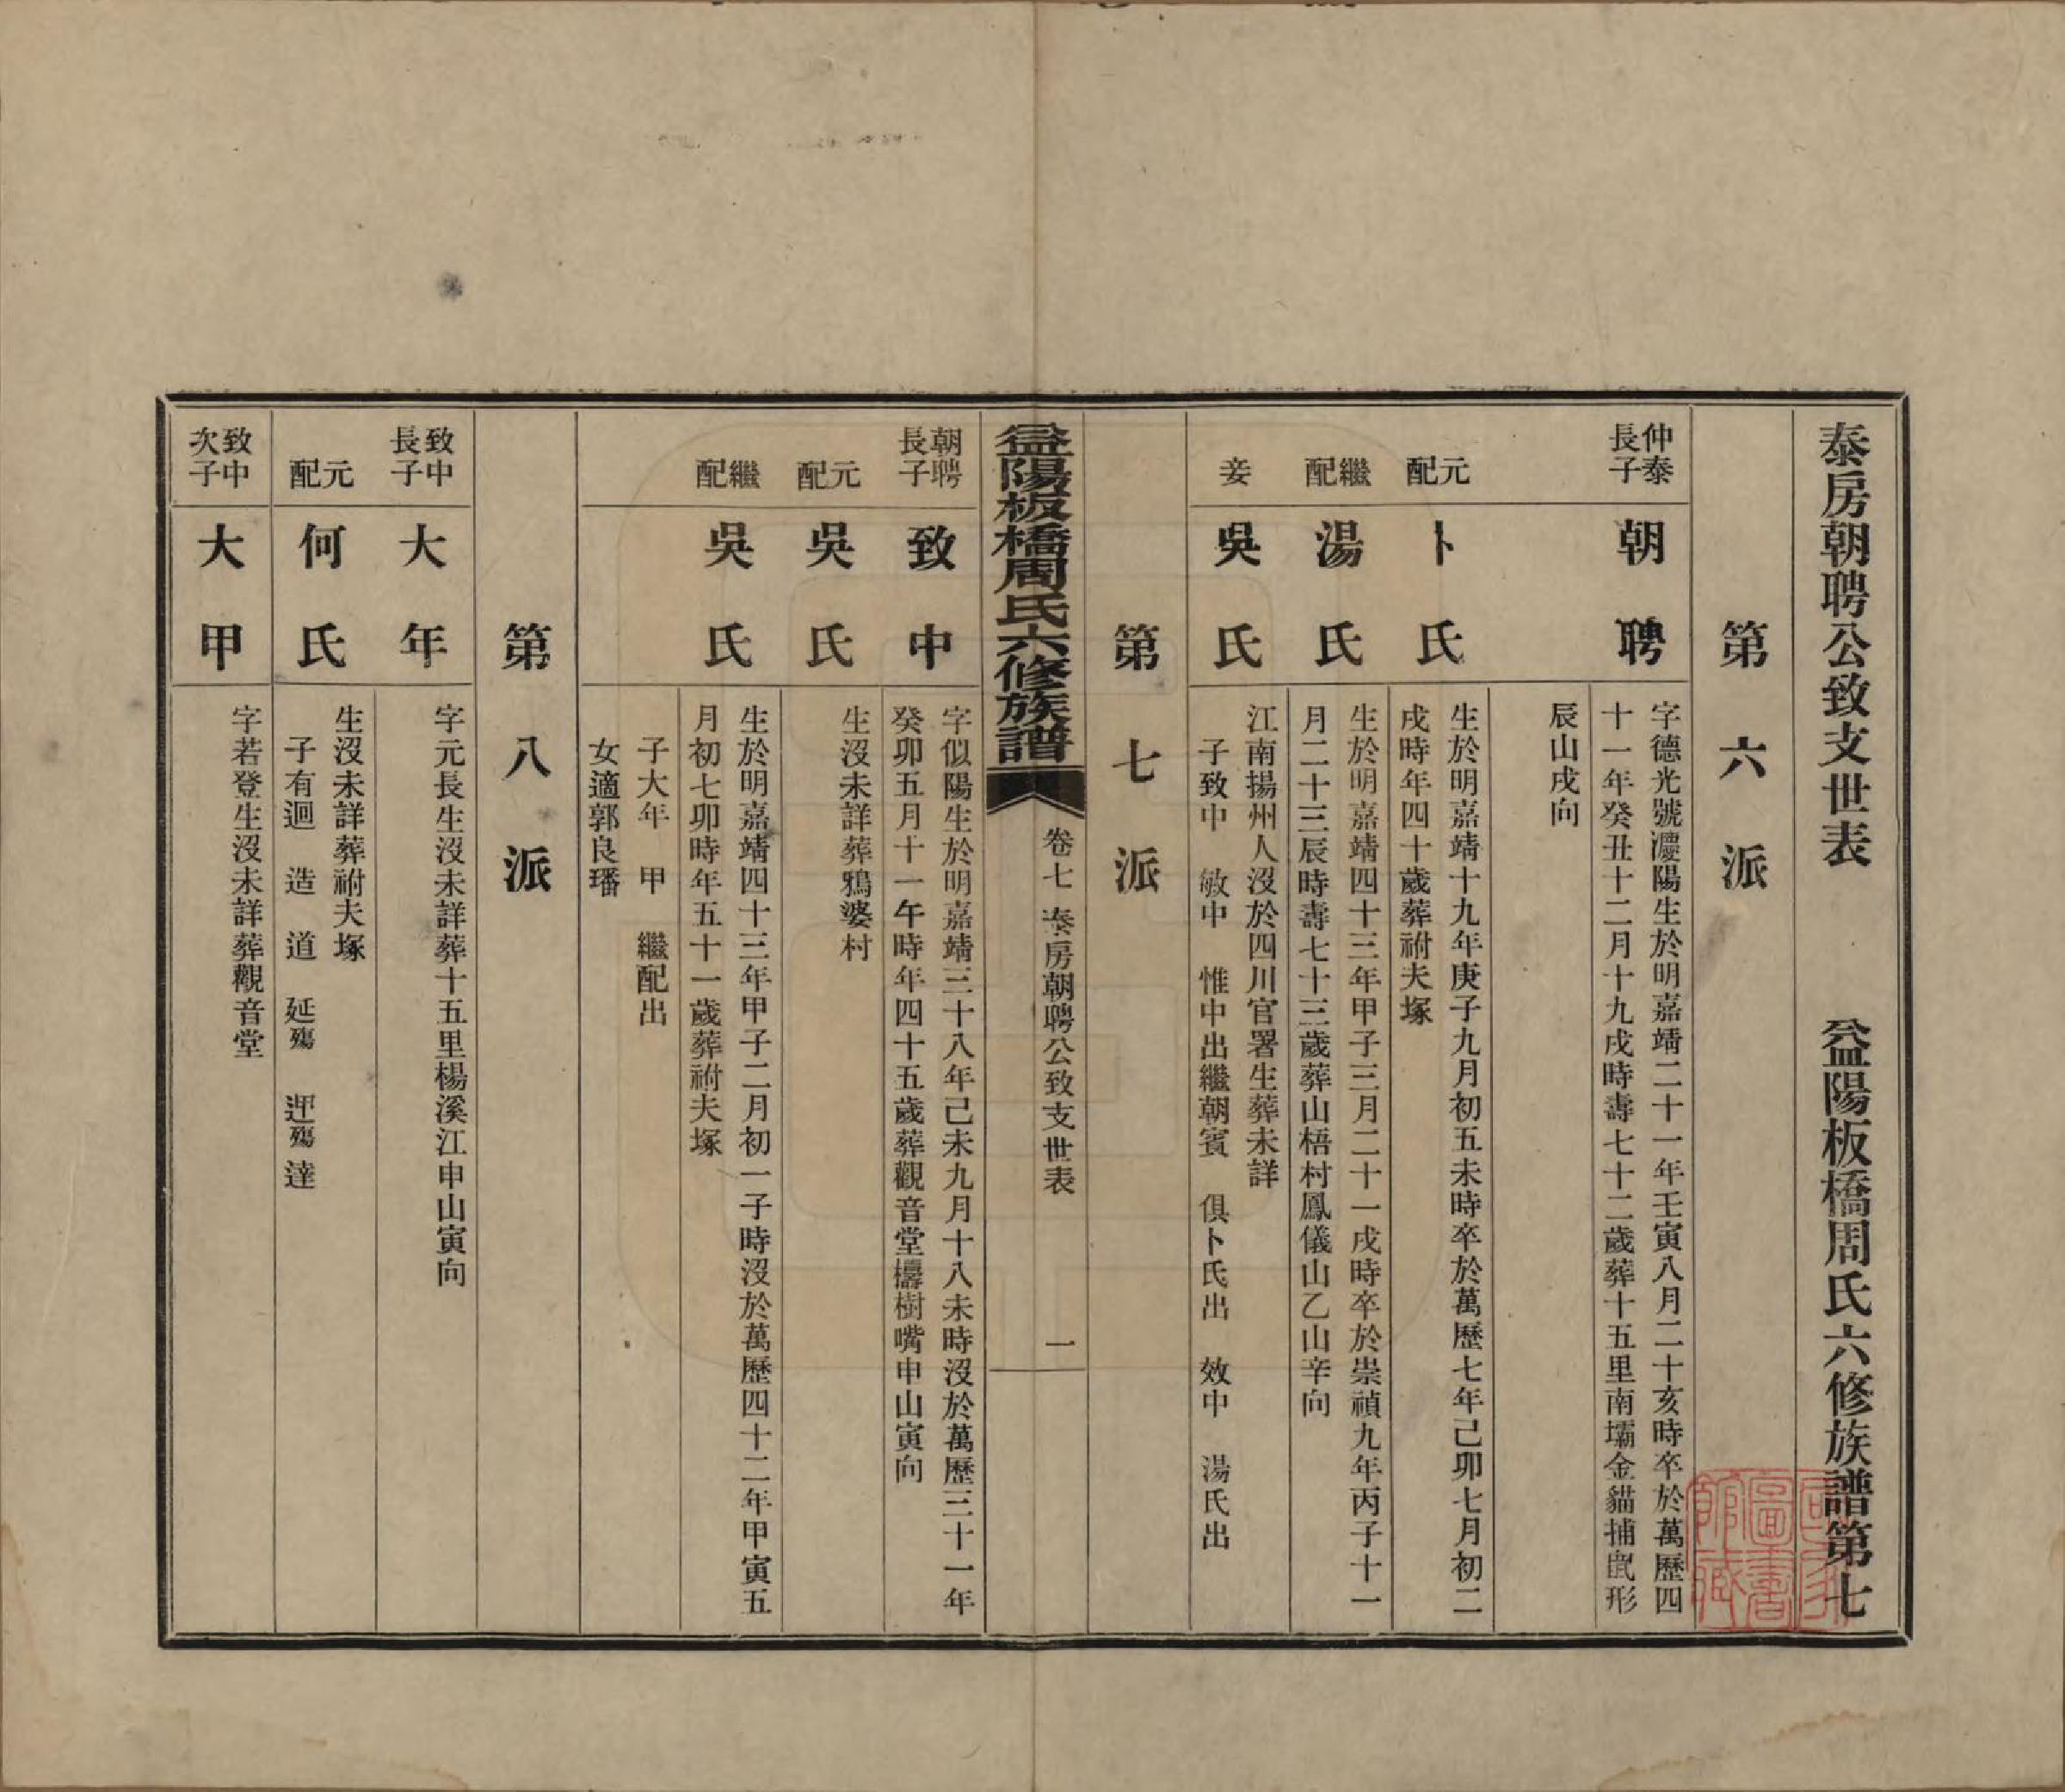 泰房朝聘公致支世表　益陽板橋周氏六修族譜第七
第六派
仲泰
長子
朝聘
字德光號澧陽生於明嘉靖二十一年壬寅八月二十亥時卒於萬歷四
十一年癸丑十二月十九戌時壽七十二歲葬十五里南壩金貓捕鼠形
辰山戌向
元配
卜氏
生於明嘉靖十九年庚子九月初五未時卒於萬歷七年己卯七月初二
戌時年四十歲葬祔夫塚
繼配
湯氏
生於明嘉靖四十三年甲子三月二十一戌時卒於崇禎九年丙子十一
月二十三辰時壽七十三歲葬山梧村鳳儀山乙山辛向
妾
吳氏
江南揚州人沒於四川官署生葬未詳
子致中　敏中　惟中出繼朝賓　俱卜氏出　效中　湯氏出
第七派
益陽板橋周氏六修族譜
卷七　泰房朝聘公致支世表　一
朝聘
長子
致中
字似陽生於明嘉靖三十八年己未九月十八未時沒於萬歷三十一年
癸卯五月十一午時年四十五歲葬觀音堂檮樹嘴申山寅向
元配
吳氏
生沒未詳葬鴉婆村
繼配
吳氏
生於明嘉靖四十三年甲子二月初一子時沒於萬歷四十二年甲寅五
月初七卯時年五十一歲葬祔夫塚
子大年　甲　繼配出
女適郭良璠
第八派
致中
長子
大年
字元長生沒未詳葬十五里楊溪江申山寅向
元配
何氏
生沒未詳葬祔夫塚
子有迴　造　道　延殤　迎殤　達
致中
次子
大甲
字若登生沒未詳葬觀音堂